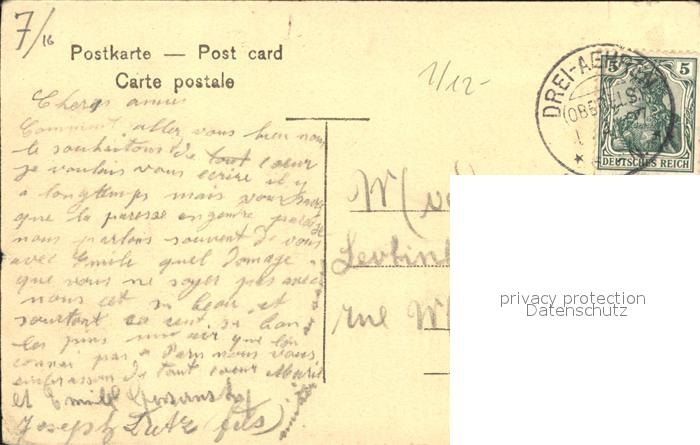 7/16
Postkarte — Post card
Carte postale
1/12-
DREI-AEHREN
(OBER ELS.)
5 5
DEUTSCHES REICH
Chers amies
Comment aller vous bien nous
te souhaitons de tout coeur
je voulais vous ecrire il y
a longtemps mais vous savez
que la paresse engendre
nous parlons souvent de vous
avec Emile quel domage
que vous ne soyer pas avec
nous cet si beau et
sourtout ca cent si bon
les pins un air que l'on
connai pas a Paris nous vous
embrasson de tout coeur Marie
et Emile
Joseph Lutz (fils)
rue
privacy protection
Datenschutz